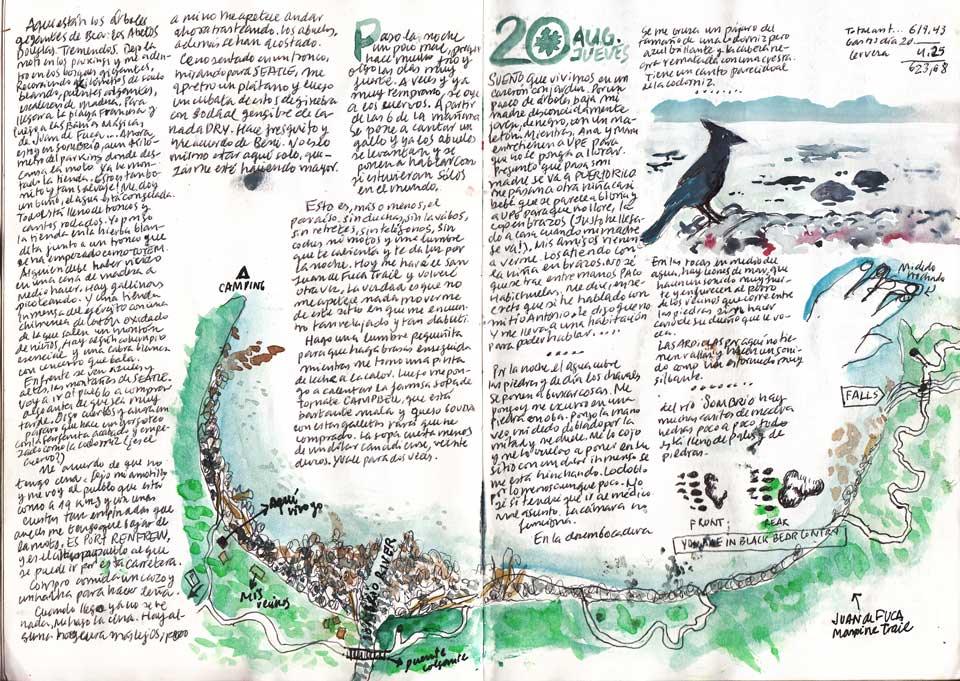 Aquí están los árboles
gigantes de BCa: los Abetos
Douglas. Tremendos. Dejo la
moto en los parkings y me aden-
tro en los bosques gigantes,
puentes colgantes,
de madera, para
llegar a la playa Francesa y
luego a las Bañas Mágicas
de Juan de Fuca... Ahora
estoy en SOMBRIO, a un kiló-
metro del parking donde des-
cansa la moto. Ya he mon-
tado la tienda. Esto es tan bo-
nito y tan salvaje! Me doy
un baño, el agua está congelada.
Todo está lleno de troncos y
cantos rodados. Yo pongo
la tienda en la hierba blan-
dita junto a un tronco que
se ha empezado como totem.
Alguien debe haber hecho
en una cena de madera a
medio hacer. Hay gallinas
picoteando. Y una tienda
inmensa del ejército con una
chimenea de latón oxidado
de la que salen un montón
de niños. Hay algún columpio
esencial y una cabra blanca
con cencerro que bala.
Enfrente se ven azules y
altas, las montañas de SEATLE.
Voy a ir al pueblo a comprar
algo antes de que sea muy
tarde. Oigo cuervos y ahora un
pájaro que hace un gorjeo
como la codorniz (¿o es el
cuervo?)
Me acuerdo de que no
tengo cena. Dejo mi amohillo
y me voy al pueblo que está
como a 19 Kms y con unas
cuestas tan empinadas que
a veces me tengo que bajar de
la moto. ES PORT RENFREW,
y es el último pueblo al que
se puede ir por esta carretera.
Compro comida un cazo y
un hacha para hacer leña.
Cuando llego ya no se ve
nada, me hago la cena. Hay al-
guna hoguera más lejos, pero
a mí no me apetece andar
ahora trasteando. Los abuelos,
además se han acostado.
Ceno sentado en un tronco,
mirando para SEATLE, me
aprieto un plátano y luego
un cubata de cintos de ginebra
con soda al gengibre de Ca-
nada DRY. Hace fresquito y
me acuerdo de Beni. No es lo
mismo estar aquí solo, qui-
zás me esté haciendo mayor.
Paso la noche
un poco mal, porque
hace mucho frío y
oigo las olas muy
juntas. A veces y ya
muy temprano, se oye
a los cuervos. A partir
de las 6 de la mañana
se pone a cantar un
gallo y ya los abuelos
se levantan y se
ponen a hablar como
si estuvieran solos
en el mundo.
Esto es, más o menos, el
paraíso. Sin duchas, sin lavabos,
sin retretes, sin teléfonos, sin
coches ni motos y una lumbre
que te calienta y te da luz por
la noche. Hoy me haré el San
Juan de Fuca Trail y volveré
otra vez. La verdad es que no
me apetece nada moverme
de este sitio en que me encuen-
tro tan relajado y tan dabuti.
Hago una lumbre pequeñita
para que haga brasas enseguida
mientras me tomo una pinta
de leche a la calor. Luego me pon-
go a calentar la famosa sopa de
tomate CAMPBELL, que está
bastante mala y queso GOUDA
con estas galletas raras que he
comprado. La sopa cuesta menos
de un dólar canadiense, veinte
duros. Y vale para dos veces.
CAMPING
Aquí vivo yo
Mis vecinos
SOMBRIO RIVER
puente colgante
20 AUG.
JUEVES
SUEÑO que vivimos en un
caserón con jardín. Por un
paseo de árboles, baja mi
madre descomunalmente
joven, de negro, con un ma-
letón. Mientras, Ana y Mima
entretienen a UPE para
que no le ponga a llorar.
Presiento que para mi
madre se va a PUERTO RICO
me pasan a otra niña casi
bebé que se parece a Gloria y
a UPE para que no llore, la
cojo en brazos (Justo he llega-
do a casa cuando mi madre
se va!). Mis amigos vienen
a verme. Los atiendo con
la niña en brazos. No sé
que se trae entre manos Paco
Habichuelas. Me dice, en se-
creto que si he hablado con
mi tío Antonio. Le digo que no
y me lleva a una habitación
para poder hablar....
Por la noche el agua cubre
las piedras y de día los chavales
se ponen a buscar cosas. Me
pongo y me escurro en una
piedra en oba. Pongo la mano
veo mi dedo doblado por la
mitad y me duele. Me lo cojo
y me lo vuelvo a poner en su
sitio con un dolor inmenso se
me está hinchando. Lo doblo
por lo menos aunque poco. No
sé si tendré que ir al médico
me asusto. La cámara no
funciona.
En la desembocadura
se me cruza un pájaro del
tamaño de una codorniz pero
azul brillante y la cabeza ne-
gra y rematada con una cresta.
Tiene un canto parecido al
de la codorniz.
Total ant... 619.43
Gastos día 20
Cerveza 4.25
623,68
En las rocas en medio del
agua, hay leones de mar, que
hacen un sonido muy fuer-
te y enfurecen al perro
del vecino que corre entre
las piedras sin hacer
caso de su dueño que le vo-
cea.
LAS ARDILLAS por aquí no tie-
nen rallas y hacen un soni-
do como un estornudo muy
silbante.
del río SOMBRIO hay
muchas cantos de maceta
hiedras, poco a poco todo
está lleno de palos y de
piedras.
Mi dedo machado
FALLS
FRONT.
REAR
YOU ARE IN BLACK BEAR COUNTRY
JUAN de FUCA
Marine Trail